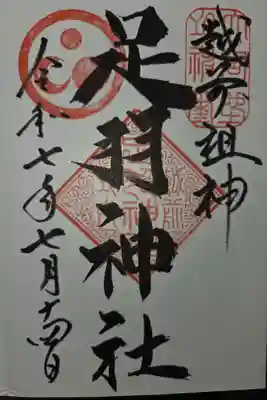 越前祖神
足羽神社
令和七年七月十四日